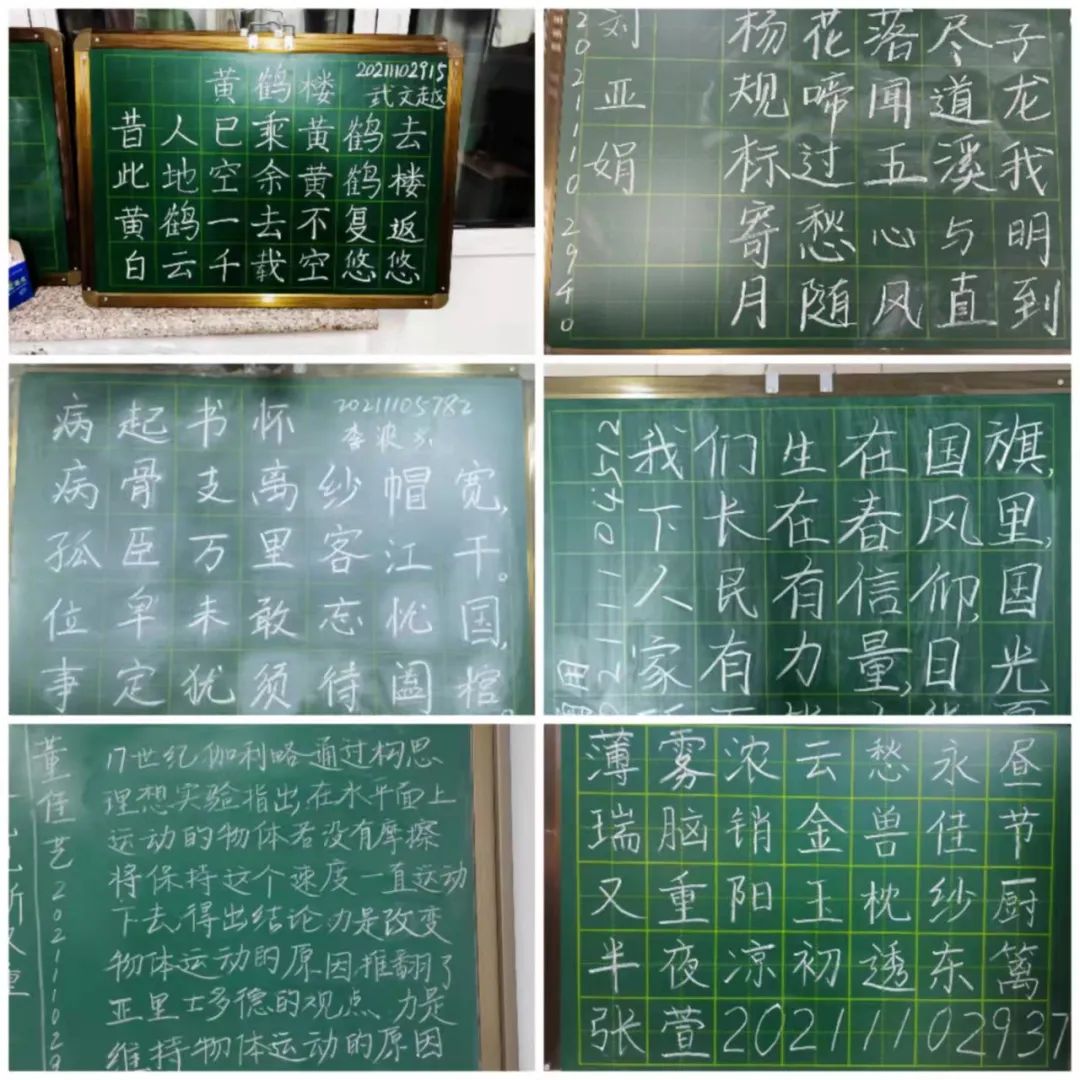 黄鹤楼
20211102915
武文越
昔人已乘黄鹤去
此地空余黄鹤楼
黄鹤一去不复返
白云千载空悠悠
杨花落尽子
规啼闻道龙
标过五溪我
寄愁心与明
月随风直到
刘亚娟
20211102940
病起书怀
20211105782
病骨支离纱帽宽,
孤臣万里客江干。
位卑未敢忘忧国,
事定犹须待阖棺。
我们生在国旗,
下长在春风里,
人民有信仰,国
家有力量,日光
董佳艺202111029
17世纪,伽利略通过构思
理想实验指出:在水平面上
运动的物体若没有摩擦
将保持这个速度一直运动
下去,得出结论,力是改变
物体运动的原因,推翻了
亚里士多德的观点,力是
维持物体运动的原因
薄雾浓云愁永昼
瑞脑销金兽佳节
又重阳玉枕纱厨
半夜凉初透东篱
张萱20211102937